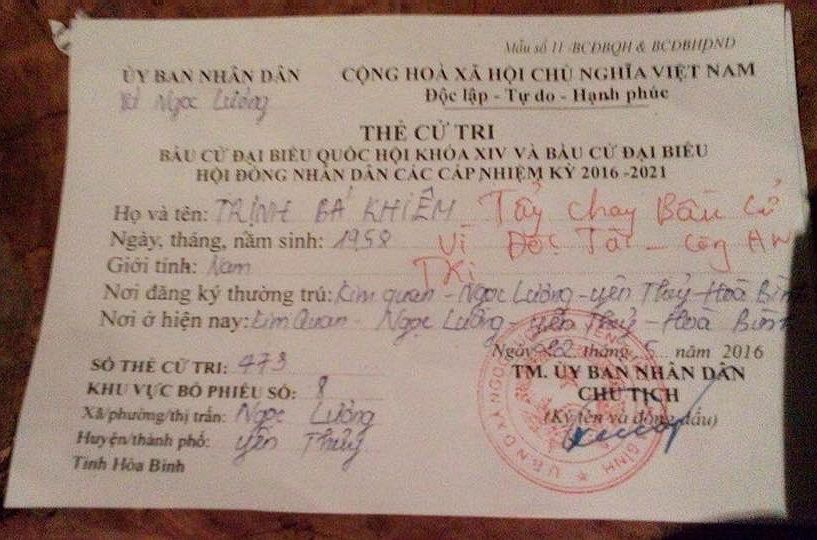 Mẫu số 11 -BCĐBQH & BCĐBHĐND
ỦY BAN NHÂN DÂN
Xã Ngọc Lương
CỘNG HOÀ XÃ HỘI CHỦ NGHĨA VIỆT NAM
Độc lập - Tự do - Hạnh phúc
THẺ CỬ TRI
BẦU CỬ ĐẠI BIỂU QUỐC HỘI KHÓA XIV VÀ BẦU CỬ ĐẠI BIỂU
HỘI ĐỒNG NHÂN DÂN CÁC CẤP NHIỆM KỲ 2016 -2021
Họ và tên: TRỊNH BÁ KHIÊM
Tẩy chay Bầu cử
Ngày, tháng, năm sinh: 1958
Vì Độc Tài - Công AN
TRị
Giới tính: Nam
Nơi đăng ký thường trú: Kim quan - Ngọc Lương - yên Thuỷ - Hoà Bình
Nơi ở hiện nay: Kim Quan - Ngọc Lương - yên Thuỷ - Hoà Bình
Ngày 02 tháng 5 năm 2016
SỐ THẺ CỬ TRI: 473
TM. ỦY BAN NHÂN DÂN
KHU VỰC BỎ PHIẾU SỐ: 8
CHỦ TỊCH
Xã/phường/thị trấn: Ngọc Lương
(Ký tên và đóng dấu)
Huyện/thành phố: yên Thuỷ
Tỉnh Hòa Bình